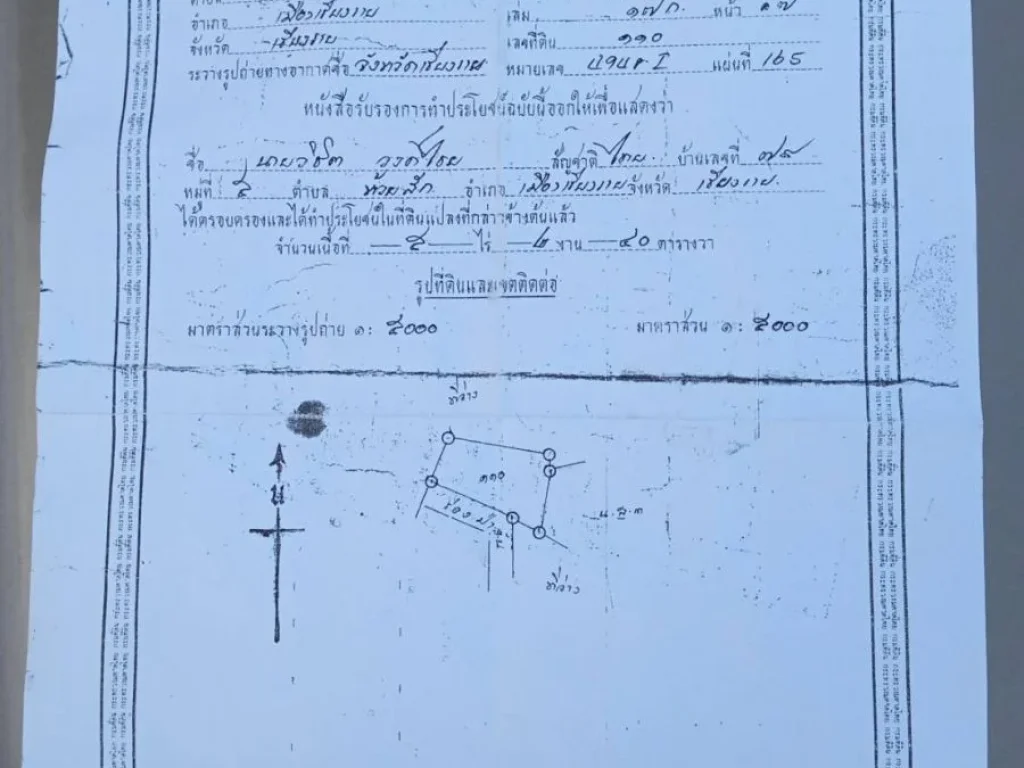 อำเภอ เมืองเชียงราย เล่ม ๑๗ ก. หน้า ๑๗
จังหวัด เชียงราย เลขที่ดิน ๑๑๐
ระวางรูปถ่ายทางอากาศชื่อ จังหวัดเชียงราย หมายเลข I แผ่นที่ 165
หนังสือรับรองการทำประโยชน์ฉบับนี้ออกให้เพื่อแสดงว่า
ชื่อ นายวิชิต วงค์ไชย สัญชาติ ไทย. บ้านเลขที่ ๗๘
หมู่ที่ ๕ ตำบล ห้วยสัก อำเภอ เมืองเชียงราย จังหวัด เชียงราย.
ได้ครอบครองและได้ทำประโยชน์ในที่ดินแปลงที่กล่าวข้างต้นแล้ว
จำนวนเนื้อที่ — ๕ — ไร่ — ๒ งาน — ๔๐ ตารางวา
รูปที่ดินและเขตติดต่อ
มาตราส่วนระวางรูปถ่าย ๑ : ๕๐๐๐ มาตราส่วน ๑ : ๕๐๐๐
ที่ว่าง
น
๑๑๐
ร่อง น้ำ
น.ส.๓
ที่ว่าง